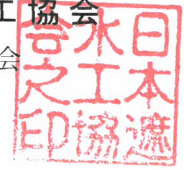 工協会
会
日本遮
水工協
会之印